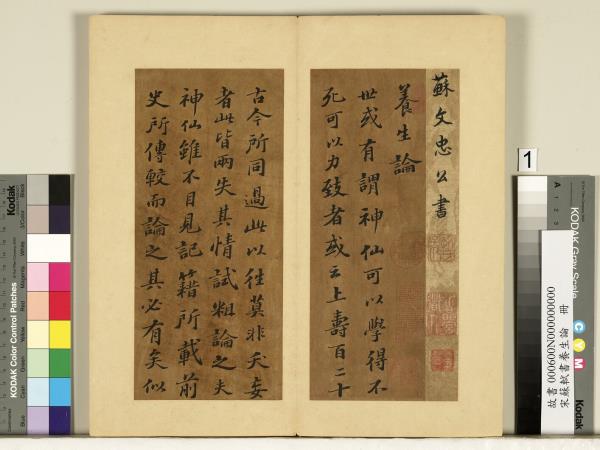 蘇文忠公書
養生論
世或有謂神仙可以學得不
死可以力致者或云上壽百二十
古今所同過此以往莫非夭妄
者此皆兩失其情試粗論之夫
神仙雖不目見記籍所載前
史所傳較而論之其必有矣似
1
KODAK Color Control Patches
Kodak
Blue
Cyan
Green
Yellow
Red
Magenta
White
3/Color
Black
KODAK Gray Scale
A 1 2 3
C Y M
Kodak
故書 000600N000000000
宋蘇軾書養生論 冊